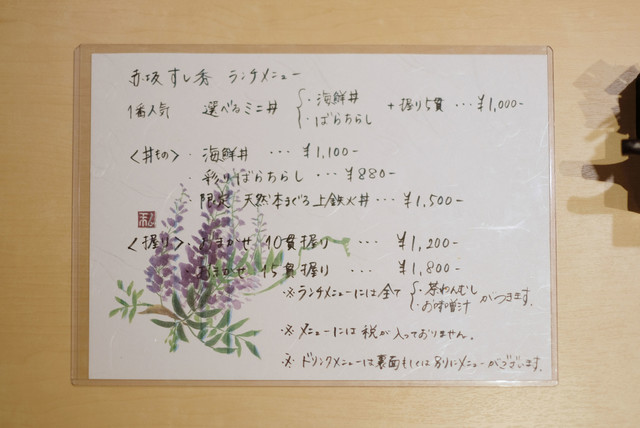 赤坂 すし秀 ランチメニュー
1番人気 選べるミニ丼 { ・海鮮丼 ・ばらちらし + 握り5貫 ・・・ ¥1,000-
<丼もの> ・ 海鮮丼 ・・・ ¥1,100-
・ 彩りばらちらし ・・・ ¥880-
・ 限定 天然本まぐろ上鉄火丼 ・・・ ¥1,500-
<握り> ・ おまかせ 10貫握り ・・・ ¥1,200-
・ おまかせ 15貫握り ・・・ ¥1,800-
※ ランチメニューには全て { ・茶わんむし ・お味噌汁 がつきます。
※ メニューには 税が入っておりません。
※ ドリンクメニューは裏面もしくは別にメニューがございます。